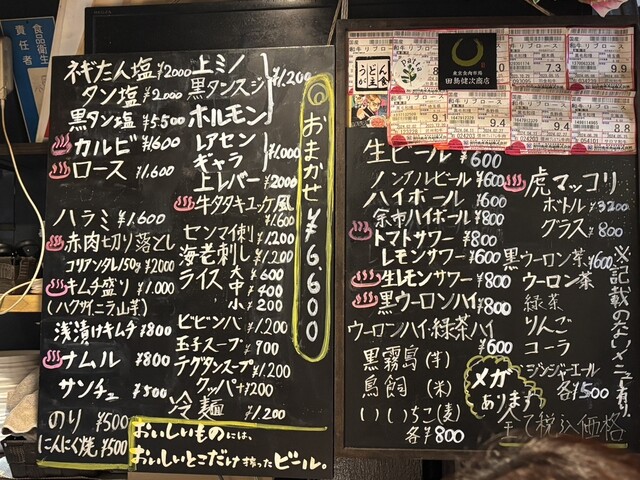 食品衛生
責任者
ネギたん塩 ¥2000
タン塩 ¥2,000
黒タン塩 ¥5500
カルビ ¥1600
ロース ¥1,600
ハラミ ¥1.600
赤肉切り落とし
コリアンタレ150g ¥2000
キムチ盛り ¥1.000
(ハクサイ・ニラ・山芋)
浅漬けキムチ ¥800
ナムル ¥800
サンチュ ¥500
のり ¥500
にんにく焼 ¥500
上ミノ
黒タンスジ
ホルモン
¥1,200
レアセン
ギャラ
¥1.000
上レバー ¥2000
牛タタキユッケ風
¥1.600
センマイ刺 ¥1200
海老刺し ¥1.200
ライス 大 ¥600
中 ¥400
小 ¥200
ビビンバ ¥1.200
玉チキスープ ¥900
テグタンスープ ¥1.200
クッパ+¥200
冷麺 ¥1,200
おまかせ ¥6600
おいしいものには、
おいしいとこだけ搾ったビール。
うどん
食堂
東京食肉市場
田島健次商店
和牛リブロース
7.3
9.9
9.1
9.4
9.4
8.8
生ビール ¥600
ノンアルビール ¥600
ハイボール ¥600
余市ハイボール ¥800
トマトサワー ¥800
レモンサワー ¥600
生レモンサワー ¥800
黒ウーロンハイ ¥800
ウーロンハイ・緑茶ハイ
¥600
黒霧島 (芋)
鳥飼 (米)
いいちこ (麦)
各¥800
虎マッコリ
ボトル ¥3200
グラス ¥800
黒ウーロン茶 ¥600
ウーロン茶
緑茶
りんご
コーラ
ジンジャーエール
各¥500
メガ
あります
全て税込価格
※記載のないメニュー有り